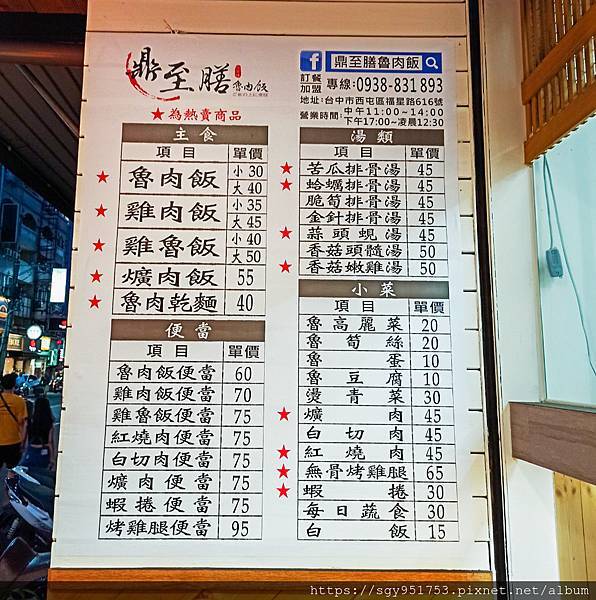 鼎至膳
魯肉飯
鼎至膳魯肉飯
訂餐
加盟
專線:0938-831893
地址:台中市西屯區福星路616號
營業時間:
中午11:00~14:00
下午17:00~凌晨12:30
★為熱賣商品
主食
項目 單價
★ 魯肉飯 小 30 大 40
★ 雞肉飯 小 35 大 45
★ 雞魯飯 小 40 大 50
★ 爌肉飯 55
★ 魯肉乾麵 40
便當
項目 單價
魯肉飯便當 60
雞肉飯便當 70
雞魯飯便當 75
紅燒肉便當 75
白切肉便當 75
爌肉便當 75
蝦捲便當 75
烤雞腿便當 95
湯類
項目 單價
★ 苦瓜排骨湯 45
★ 蛤蠣排骨湯 45
脆筍排骨湯 45
金針排骨湯 45
★ 蒜頭蜆湯 45
香菇頭髓湯 50
★ 香菇嫩雞湯 50
小菜
項目 單價
魯高麗菜 20
魯筍絲 20
魯蛋 10
魯豆腐 10
燙青菜 30
★ 爌肉 45
白切肉 45
★ 紅燒肉 45
★ 無骨烤雞腿 65
★ 蝦捲 30
每日蔬食 30
白飯 15
https://sgy951753.pixnet.net/album